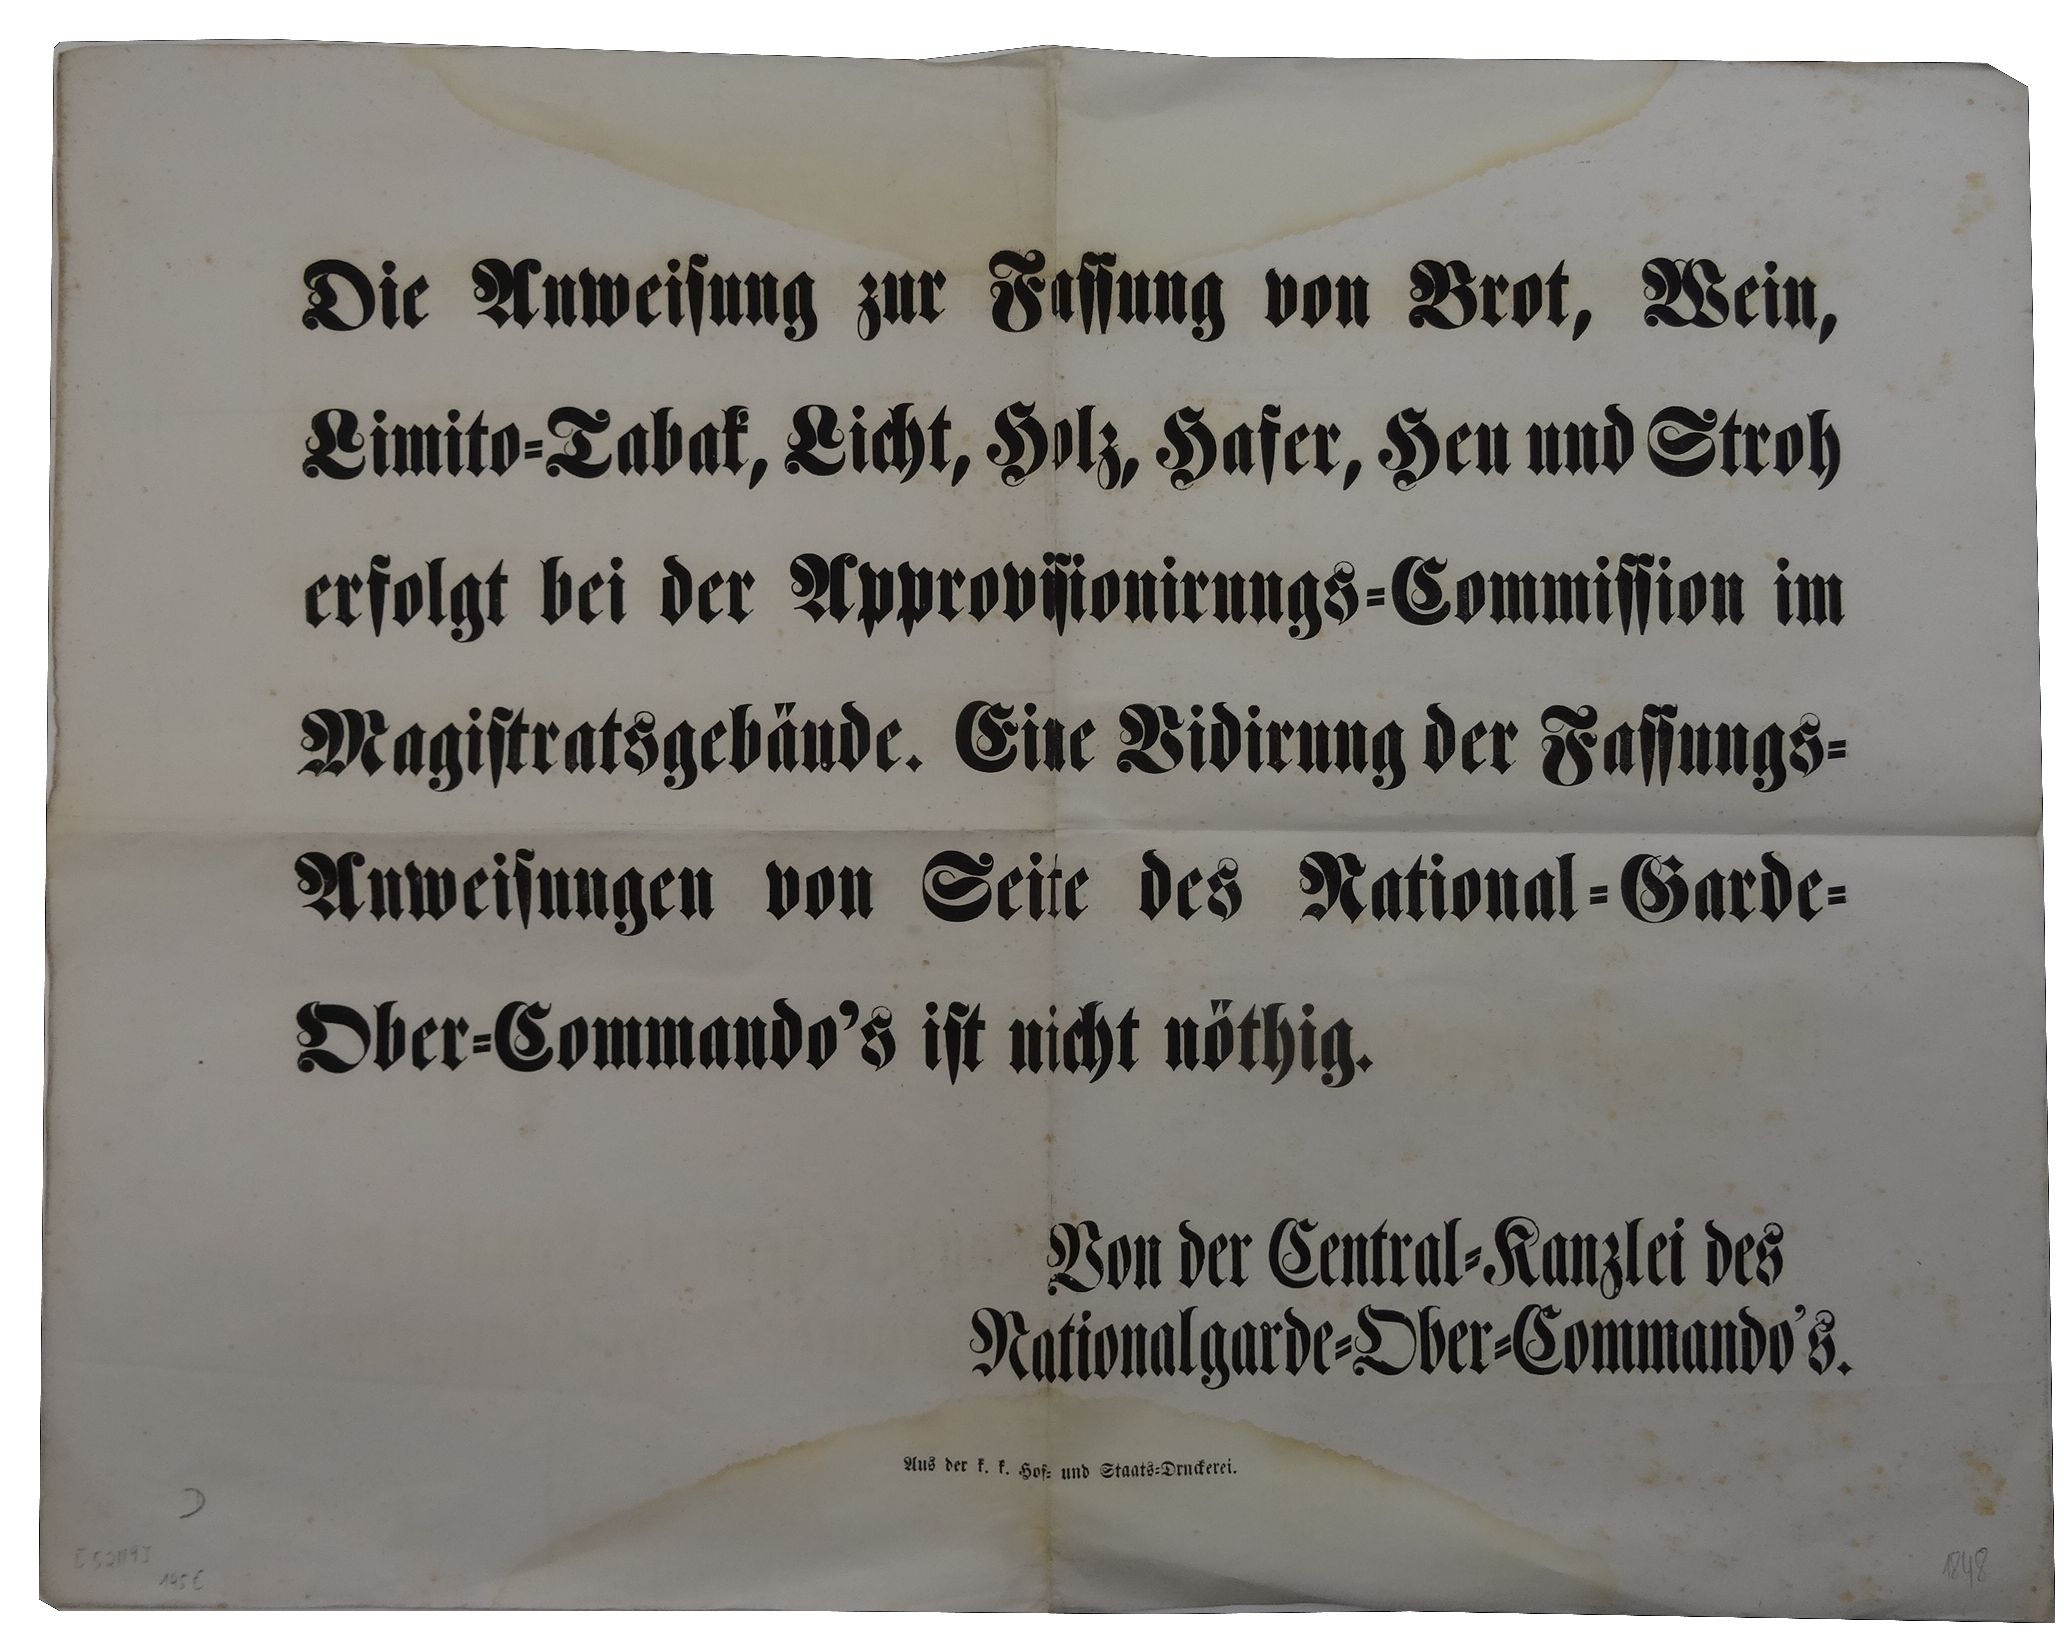 Die Anweisung zur Fassung von Brot, Wein,
Limito-Tabak, Licht, Holz, Hafer, Heu und Stroh
erfolgt bei der Approvisionirungs-Commission im
Magistratsgebäude. Eine Vidirung der Fassungs-
Anweisungen von Seite des National-Garde-
Ober-Commando's ist nicht nöthig.
Von der Central-Kanzlei des
Nationalgarde-Ober-Commando's.
Aus der k. k. Hof- und Staats-Druckerei.
145€
1848